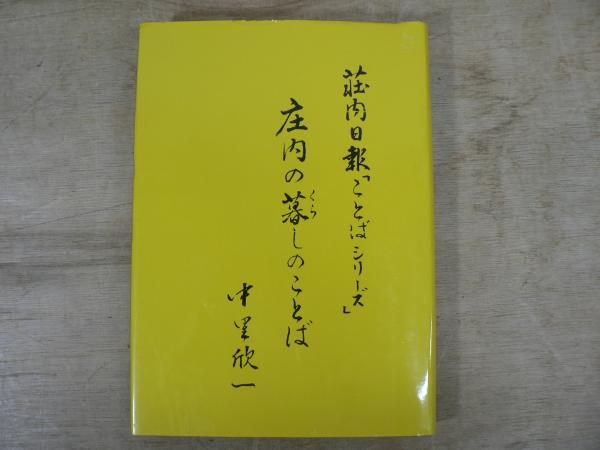 荘内日報「ことばシリーズ」
庄内の暮しのことば
くら
中里欣一